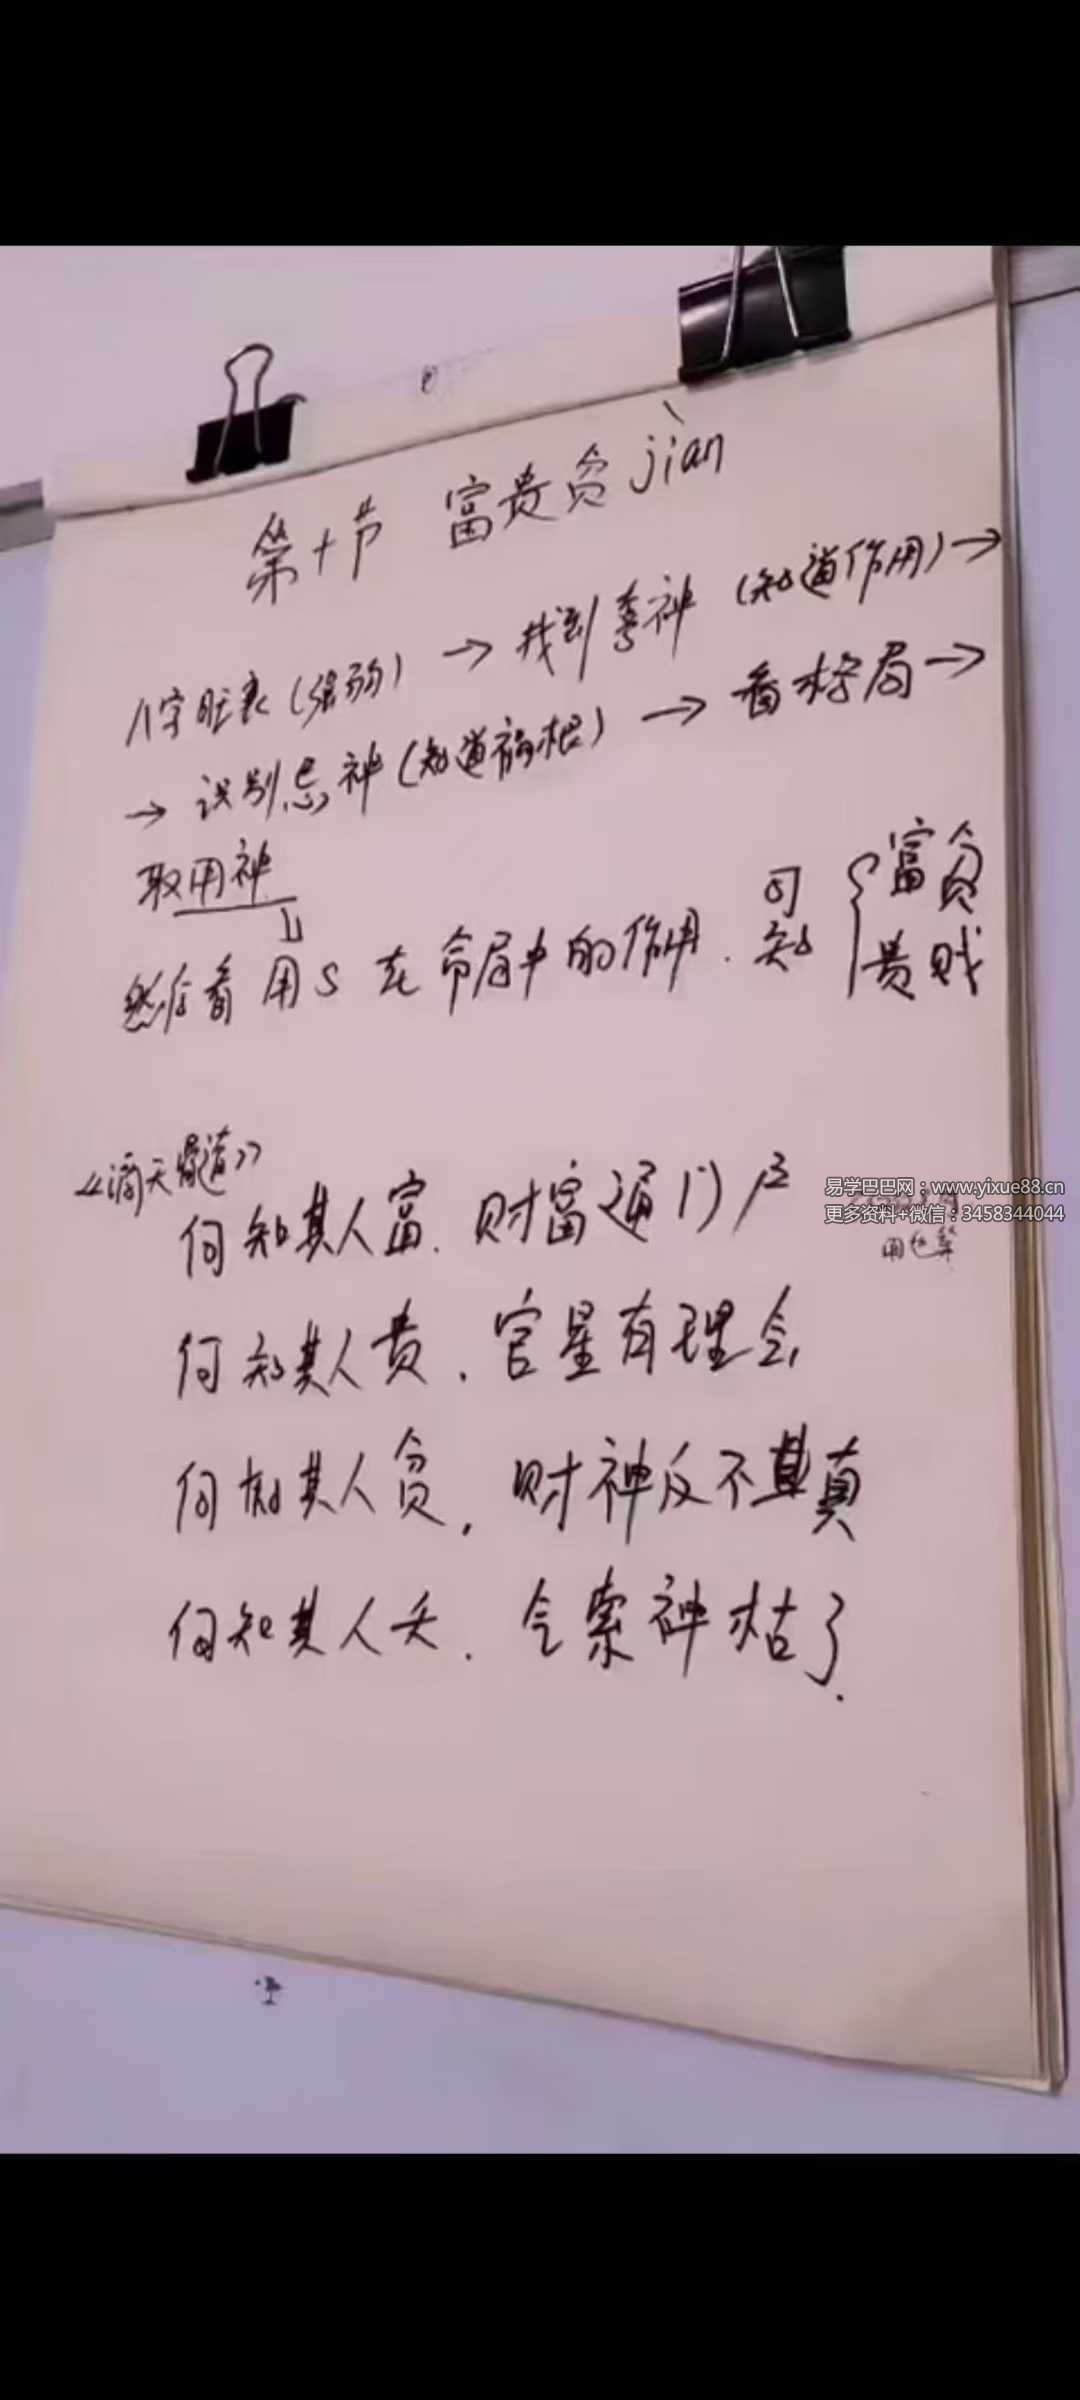 第十节 富贵贫jiàn
八字旺衰(强弱) → 找到喜神 (知道作用) →
→ 识别忌神(知道病根) → 看格局 →
取用神
然后看用S在命局中的作用. 可知 { 富贫 贵贱
《滴天髓》
何知其人富. 财富通门户
易学巴巴网:www.yixue88.cn
更多资料+微信:3458344044
何知其人贵. 官星有理会
何知其人贫. 财神反不真
何知其人夭. 气索神枯了.